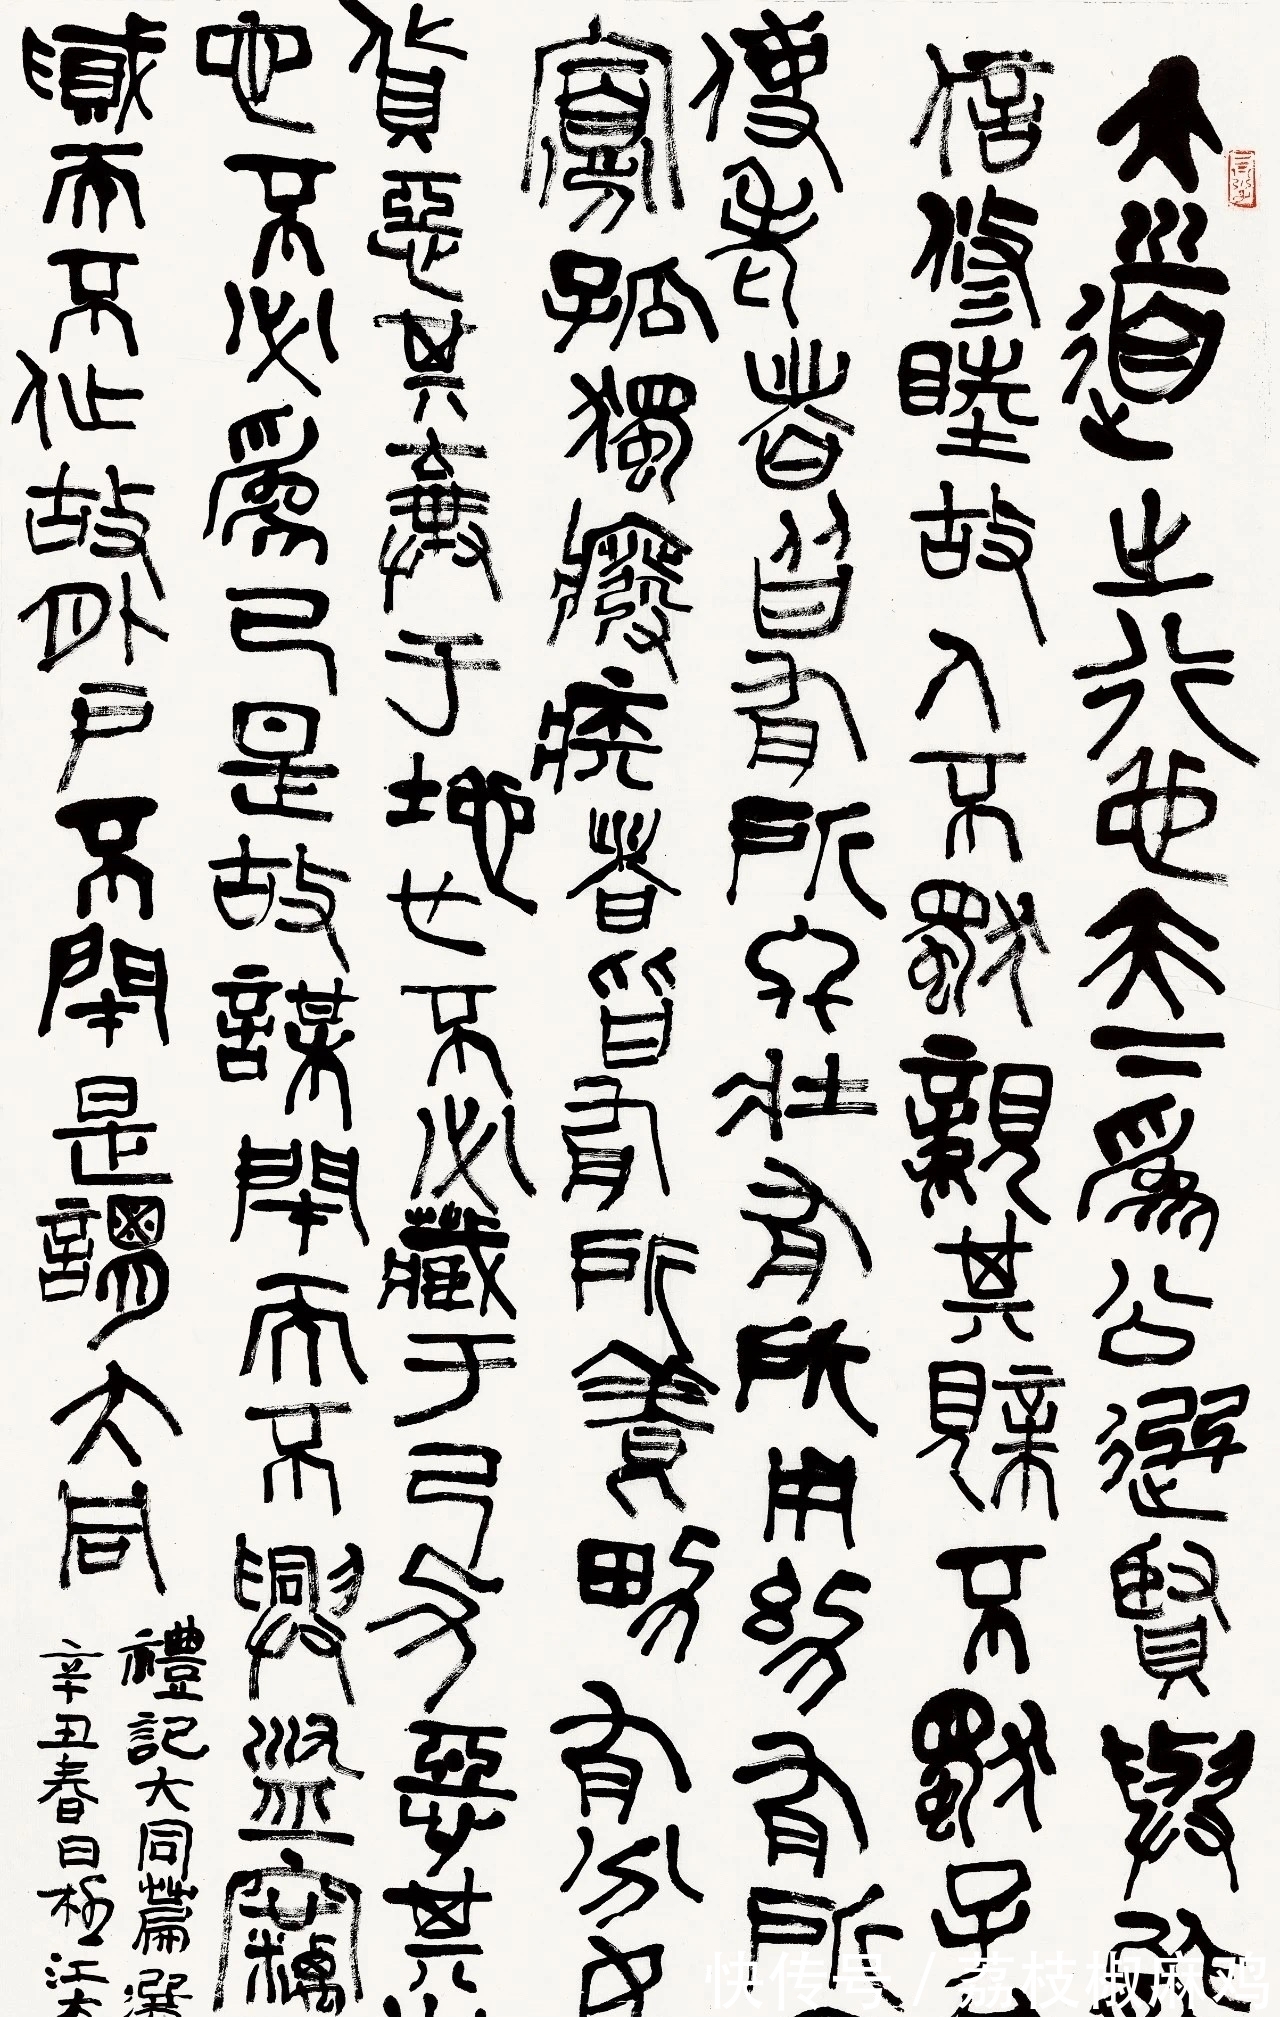 大道之行也天下爲公選賢與能
信修睦故人不獨親其親不獨子
使老者皆有所終壯有所用幼有所
寡孤獨廢疾者皆有所養男有分女
貨惡其棄于地也不必藏于己力惡其
也不必爲己是故謀閉而不興盜竊
賊而不作故外戶不閉是謂大同
禮記大同篇選
辛丑春日
快传号 / 荔枝椒麻鸡